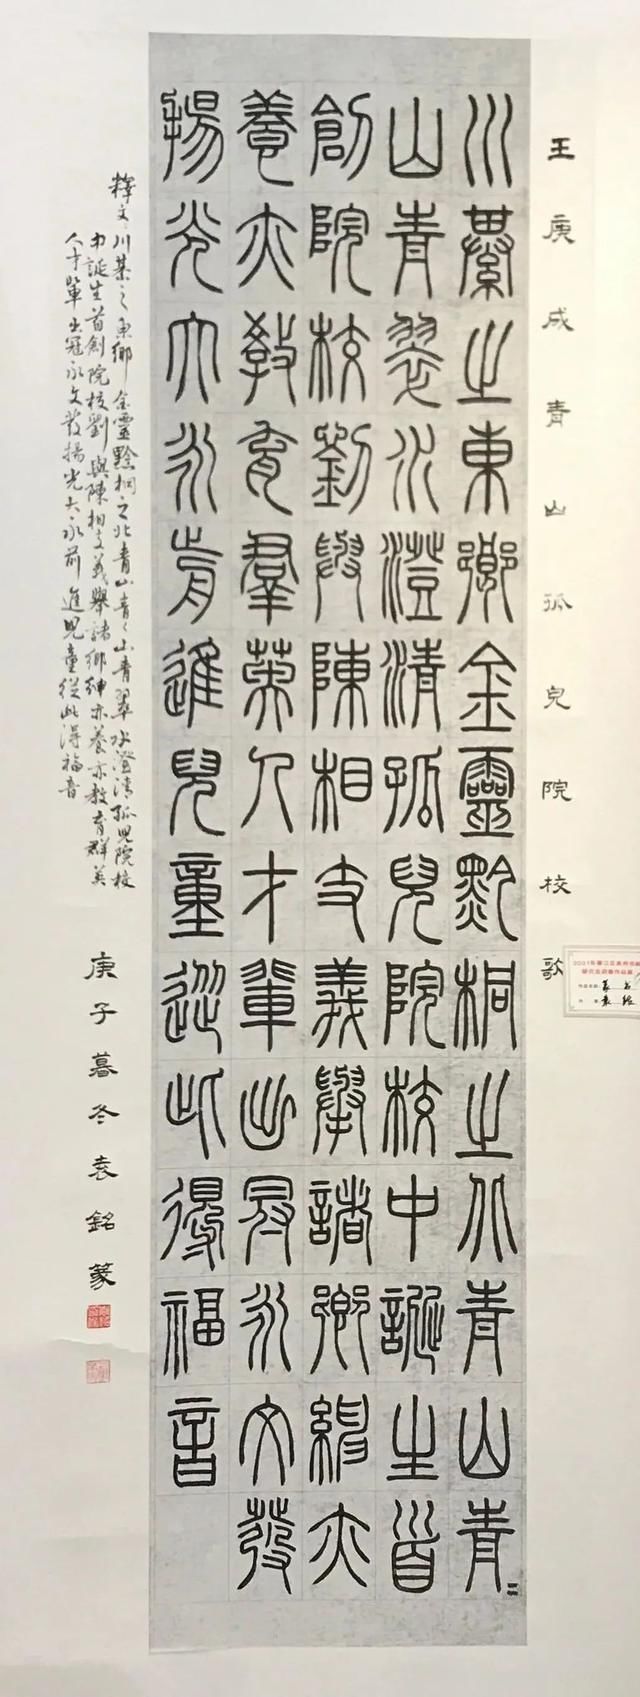 王庚成青山孤兒院校歌
川綦之東鄉金靈黔桐之北青山青〻
山青翠水澄清孤兒院校中誕生首
創院校劉與陳相支義舉諸鄉紳亦
養亦教育羣英人才輩出冠永文發
揚光大永前進兒童從此得福音
釋文川綦之東鄉金靈黔桐之北青山青〻山青翠水澄清孤兒院校
中誕生首創院校劉與陳相支義舉諸鄉紳亦養亦教育群英
人才輩出冠永文發揚光大永前進兒童從此得福音
庚子暮冬袁銘篆